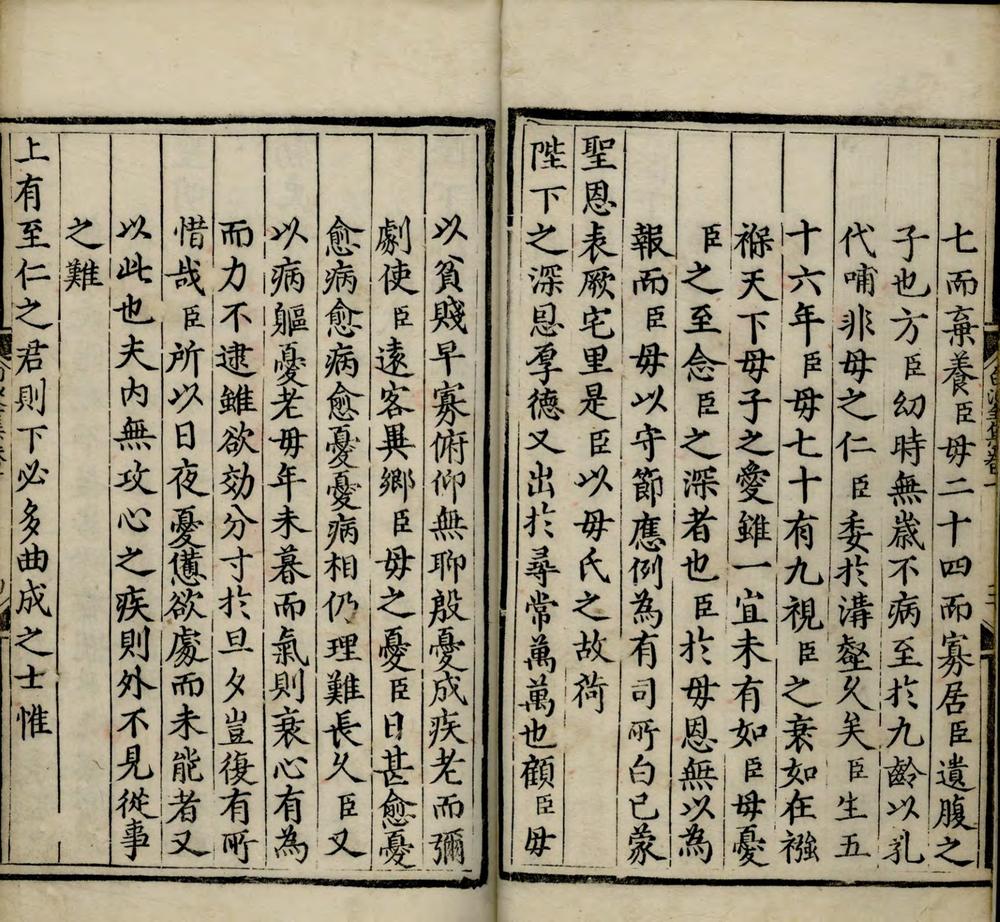 七而棄養臣母二十四而寡居臣遺腹之
子也方臣幼時無歲不病至於九齡以乳
代哺非母之仁臣委於溝壑久矣臣生五
十六年臣母七十有九視臣之衰如在襁
褓天下母子之愛雖一宜未有如臣母憂
臣之至念臣之深者也臣於母恩無以為
報而臣母以守節應例為有司所白已蒙
聖恩表厥宅里是臣以母氏之故荷
陛下之深恩厚德又出於尋常萬萬也顧臣母
以貧賤早寡俯仰無聊殷憂成疾老而彌
劇使臣遠客異鄉臣母之憂臣日甚愈憂
愈病愈病愈憂憂病相仍理難長久臣又
以病軀憂老母年未暮而氣則衰心有為
而力不逮雖欲効分寸於旦夕豈復有所
惜哉臣所以日夜憂懼欲處而未能者又
以此也夫內無攻心之疾則外不見從事
之難
上有至仁之君則下必多曲成之士惟